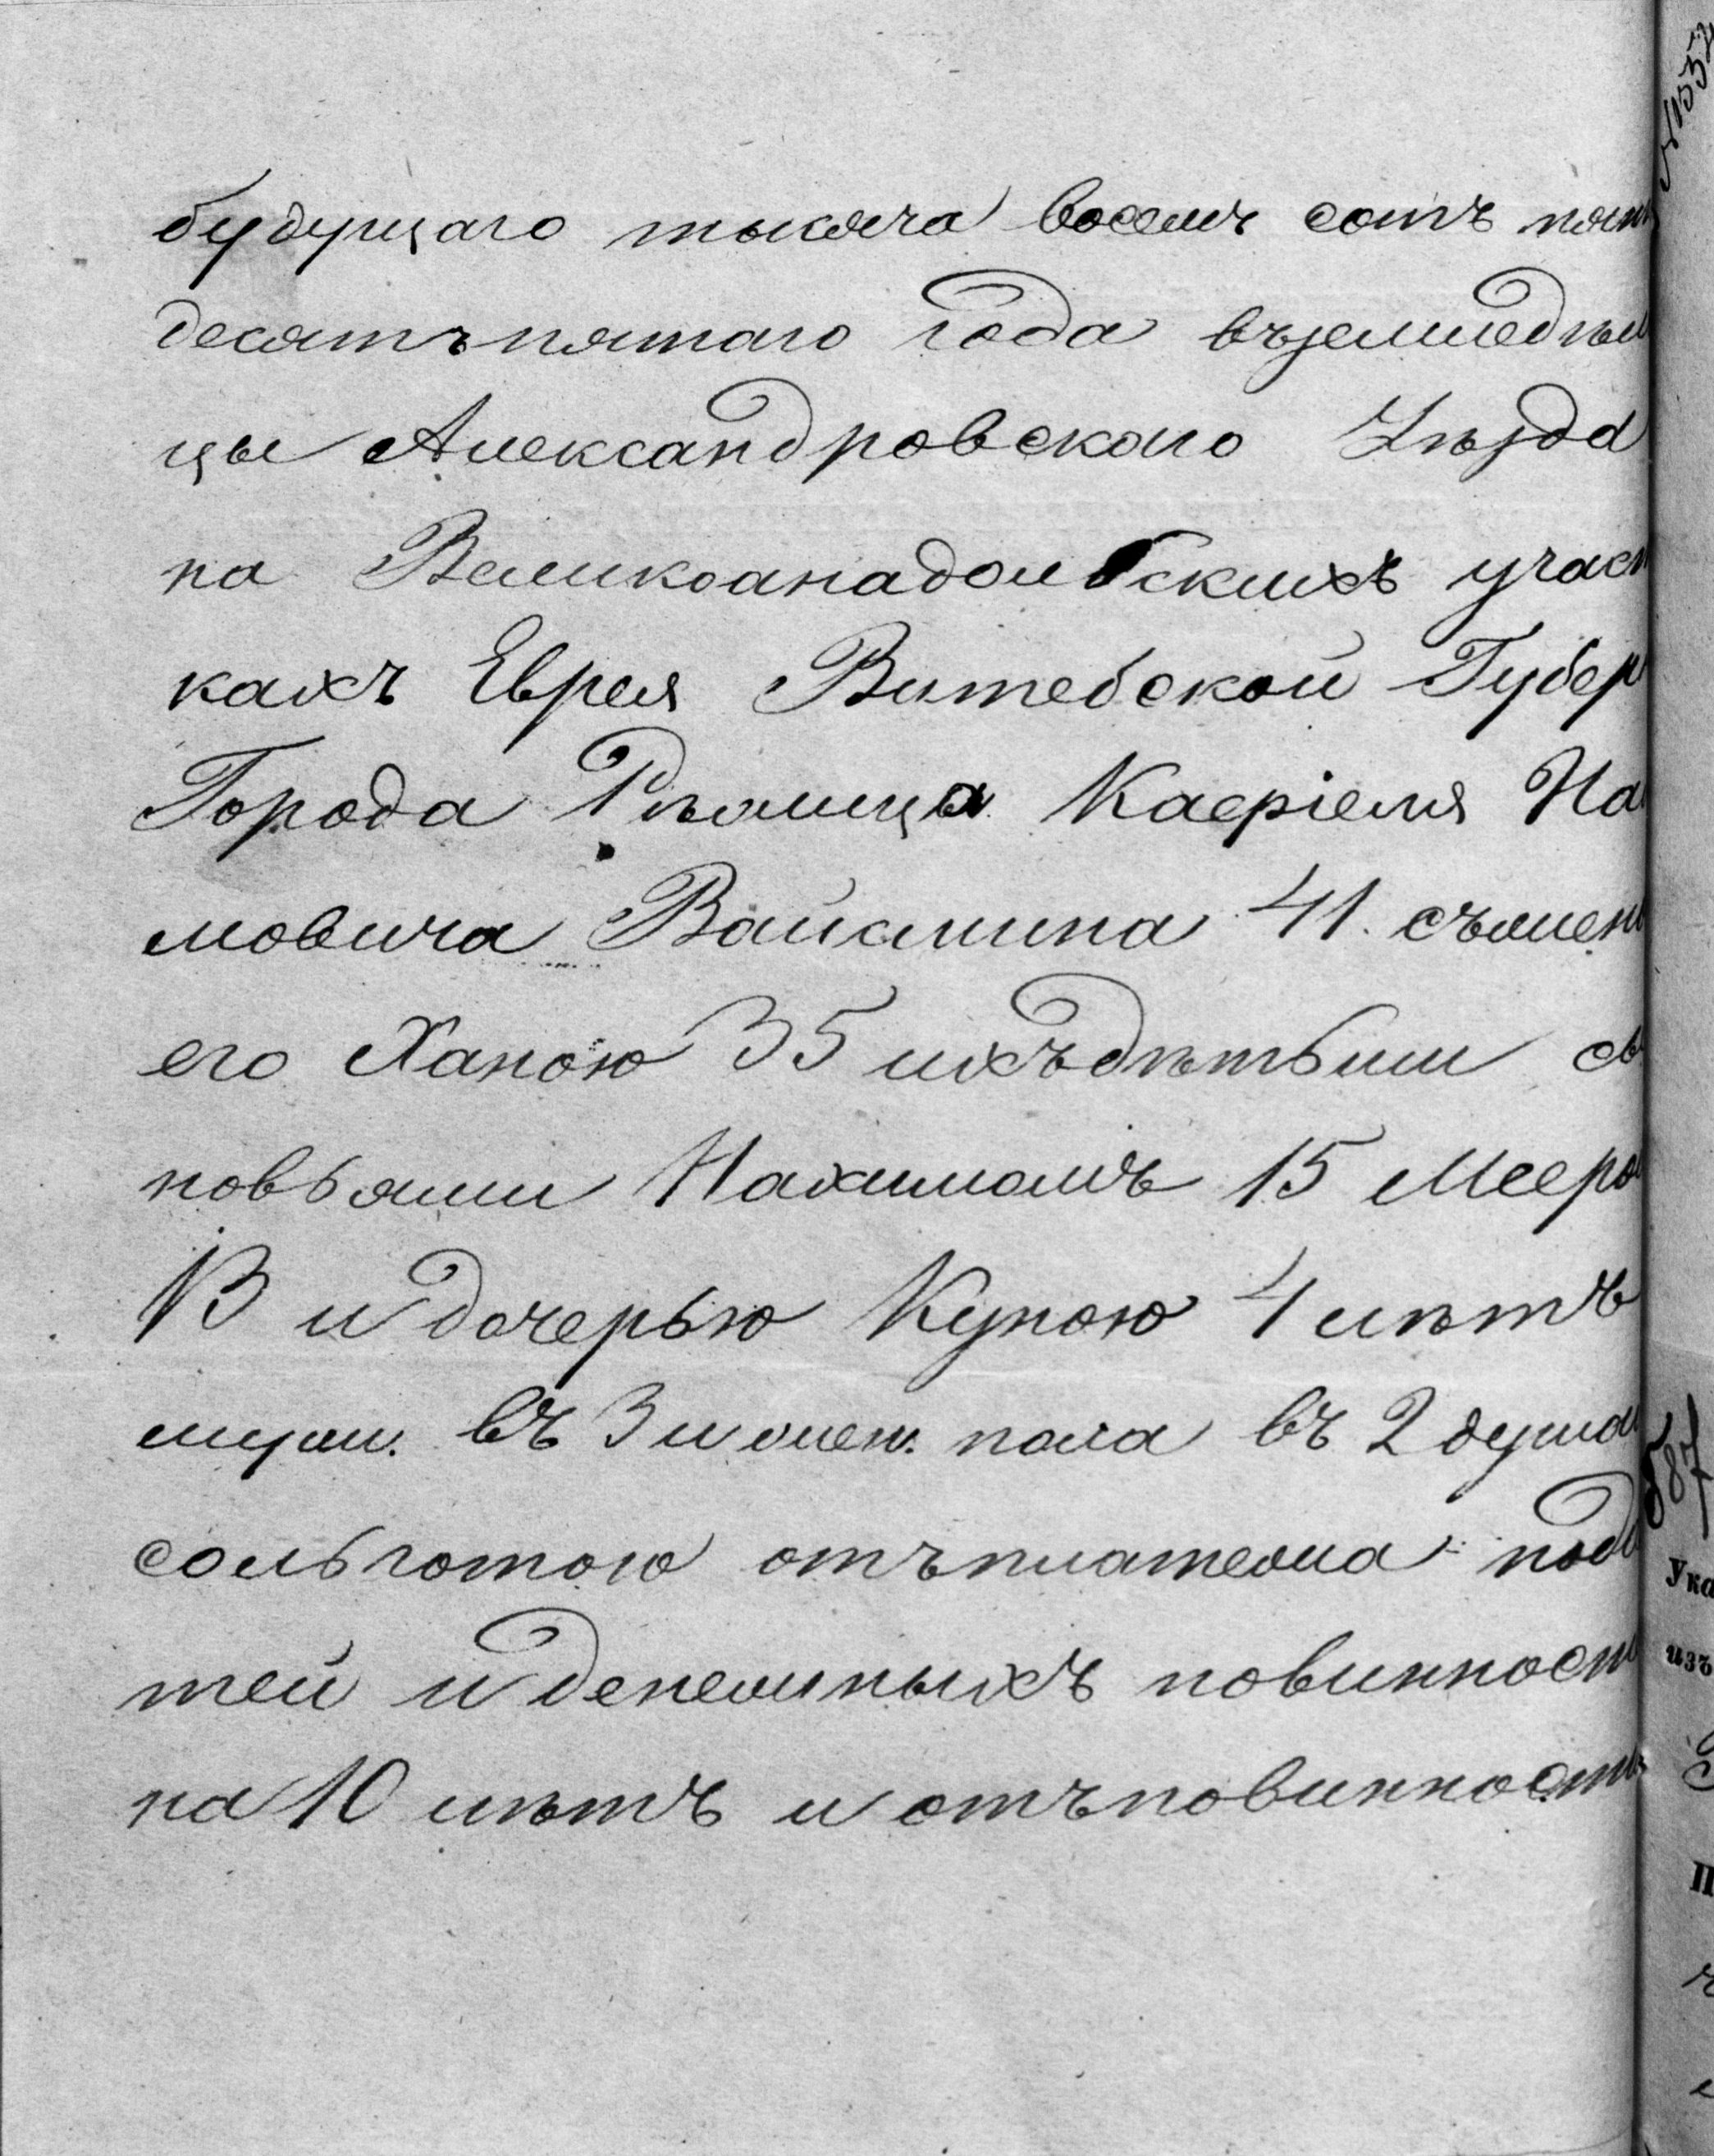 будущаго тысяча восемь сотъ пять
десятъпятаго года въземледѣль
цы Александровскаго Уѣзда
на Великоанадольскихъ участ
кахъ Еврея Витебской Губер
Города Рѣжица Касріеля На
мовича Вайсмана 41. съжен
его Ханою 35 ихъдѣтьми сы
новьями Нахимомъ 15 Мееро
13 и дочерью Куною 4 лѣтъ
муж. въ 3 и жен. пола въ 2 душа
сольготою отъплатежа пода
тей и денежныхъ повинност
на 10 лѣтъ и отъповинност
587
Ука
изъ